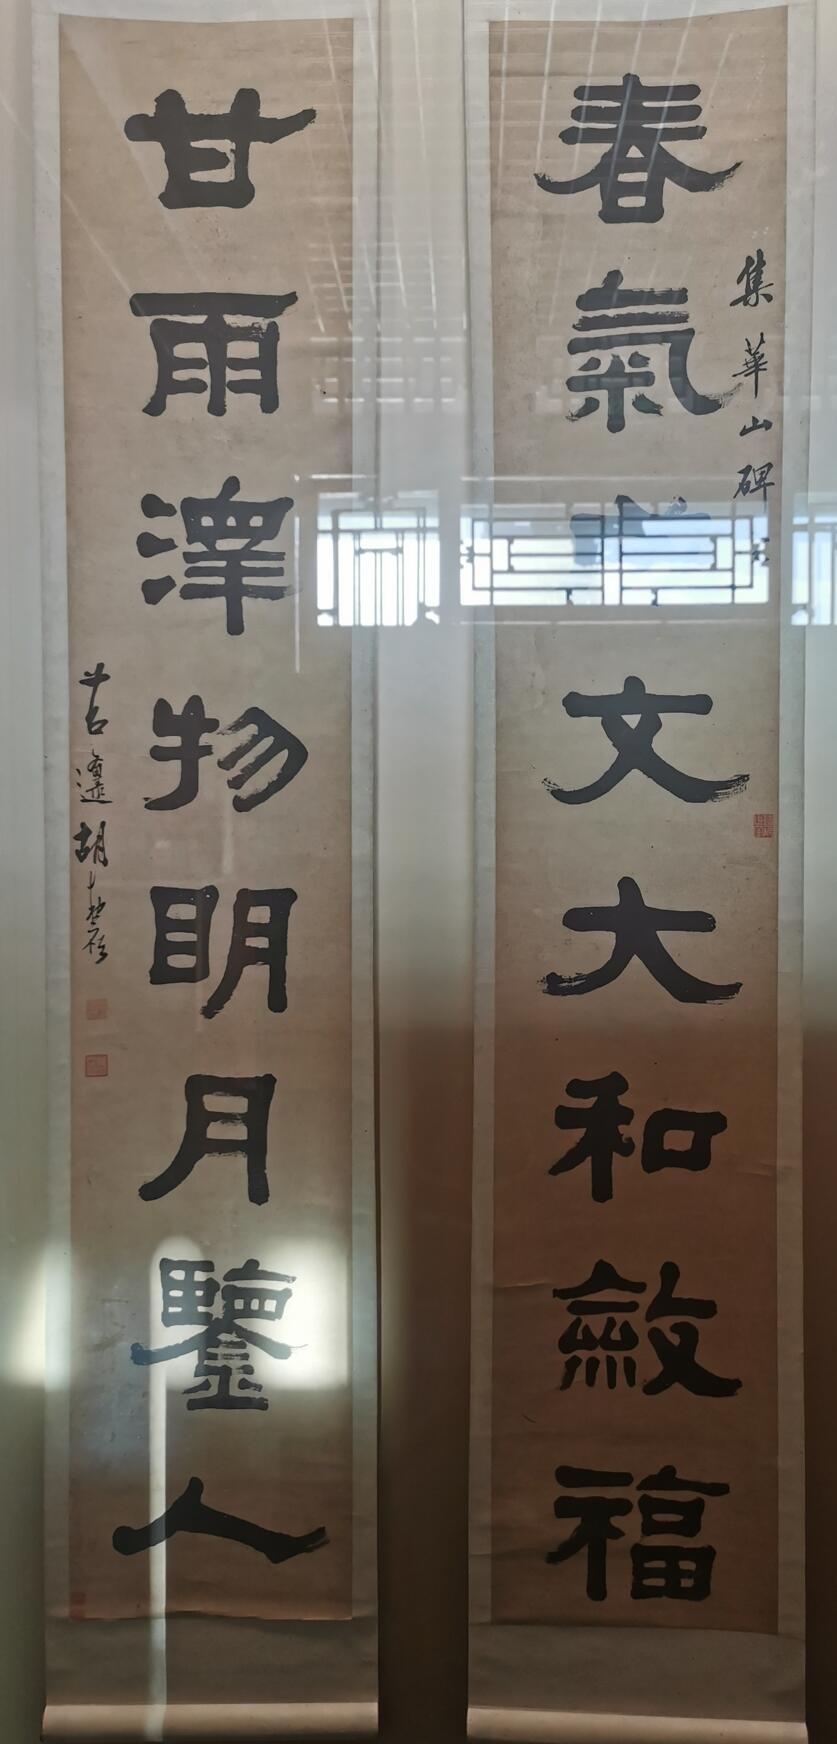 春氣 文大和斂福
集華山碑
甘雨澤物明月鑒人
苕 胡